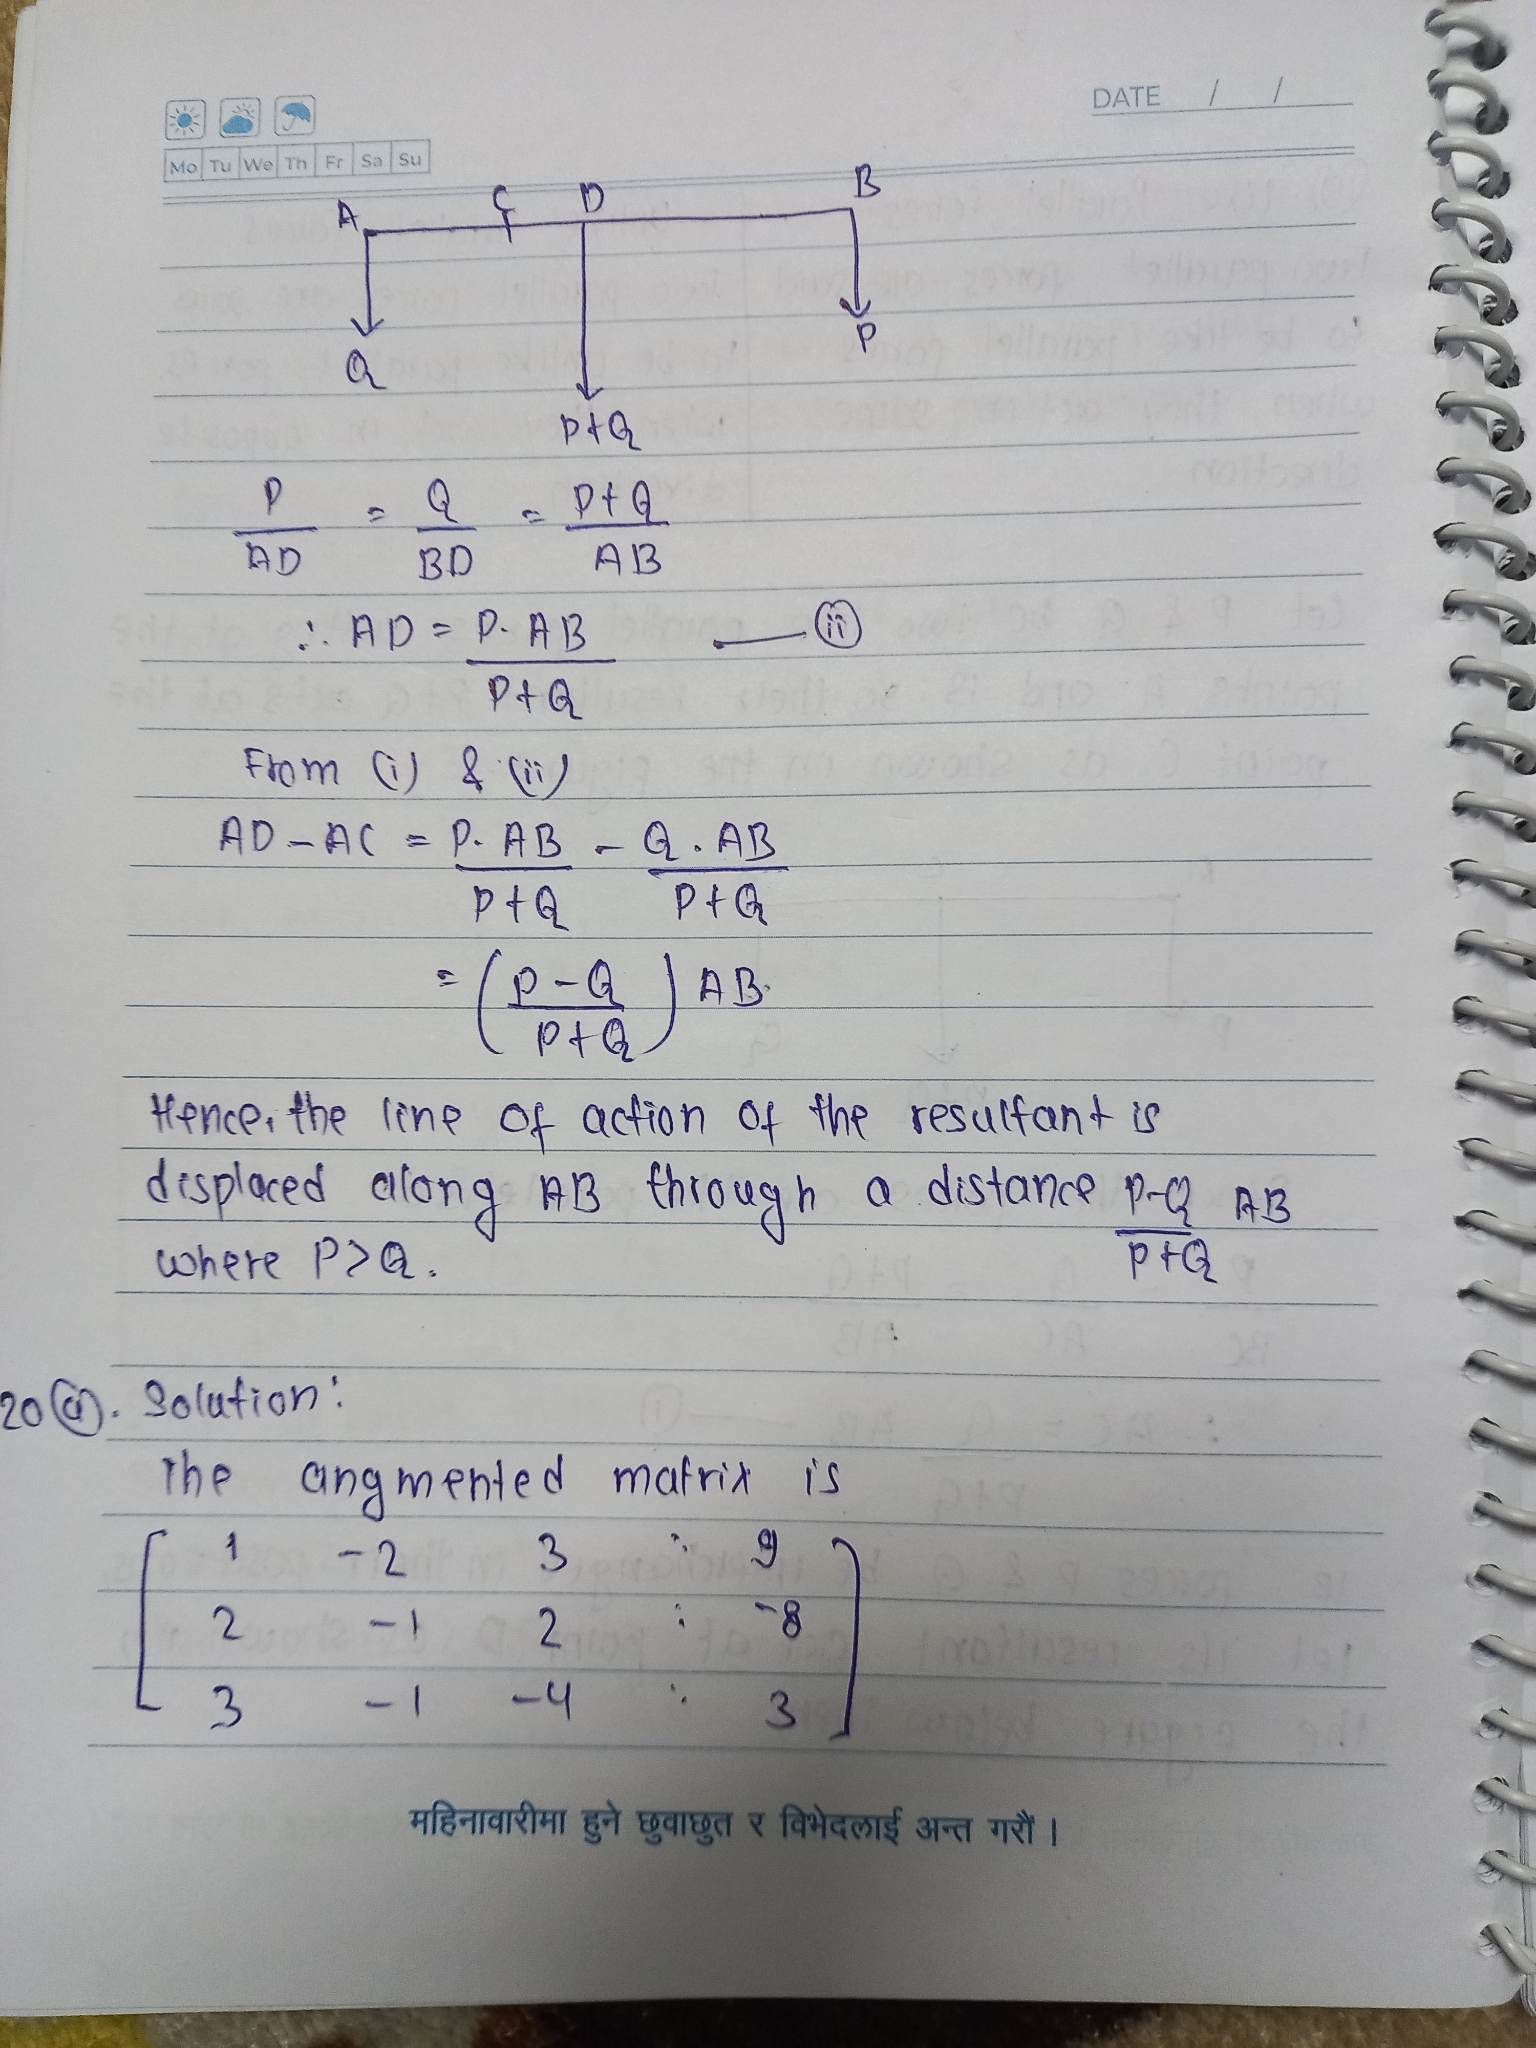 DATE / /
Mo Tu We Th Fr Sa Su
A C D B
Q P
P+Q
P/AD = Q/BD = P+Q/AB
∴ AD = P. AB/P+Q — (ii)
From (i) & (ii)
AD - AC = P. AB/P+Q - Q. AB/P+Q
= (P-Q/P+Q) AB.
Hence, the line of action of the resultant is
displaced along AB through a distance P-Q/P+Q AB
where P>Q.
20 (a). Solution:
The angmented matrix is
1 -2 3 : 9
2 -1 2 : -8
3 -1 -4 : 3
महिनावारीमा हुने छुवाछुत र विभेदलाई अन्त गरौं ।